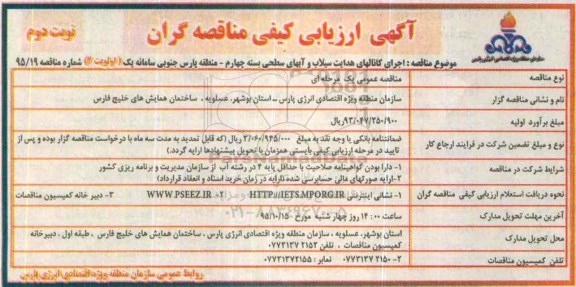 آگهی ارزیابی کیفی مناقصه گران
نوبت دوم
موضوع مناقصه : اجرای کانالهای هدایت سیلاب و آبهای سطحی بسته چهارم - منطقه پارس جنوبی سامانه یک (اولویت ۴) شماره مناقصه ۹۵/۱۹
نوع مناقصه
مناقصه عمومی یک مرحله ای
نام و نشانی مناقصه گزار
سازمان منطقه ویژه اقتصادی انرژی پارس - استان بوشهر، عسلویه ، ساختمان همایش های خلیج فارس
مبلغ برآورد اولیه
۹۲/۰۴۷/۲۵۰/۹۰۰ ریال
نوع و مبلغ تضمین شرکت در فرآیند ارجاع کار
ضمانتنامه بانکی یا وجه نقد به مبلغ ۲/۰۶۰/۹۴۵/۰۰۰ ریال (که قابل تمدید به مدت سه ماه با درخواست مناقصه گزار بوده و پس از
تایید در مرحله ارزیابی کیفی بایستی همزمان با تحویل پیشنهادها ارایه گردد.)
شرایط شرکت در مناقصه
۱- دارا بودن گواهینامه صلاحیت با حداقل پایه ۴ در رشته آب از سازمان مدیریت و برنامه ریزی کشور
۲- ارایه صورتهای مالی حسابرسی شده (ارایه در زمان خرید اسناد و انعقاد قرارداد)
نحوه دریافت استعلام ارزیابی کیفی مناقصه گران
۱- نشانی اینترنتی HTTP://IETS.MPORG.IR ۲- WWW.PSEEZ.IR ۳- دبیر خانه کمیسیون مناقصات
آخرین مهلت تحویل مدارک
ساعت ۱۴:۰۰ روز چهار شنبه مورخ ۹۵/۱۰/۱۵
محل تحویل مدارک
استان بوشهر، عسلویه ، سازمان منطقه ویژه اقتصادی انرژی پارس ، ساختمان همایش های خلیج فارس ، طبقه اول ، دبیرخانه
کمیسیون مناقصات ، تلفن ۲۱۵۲ ۰۷۷۲۱۳۷
تلفن کمیسیون مناقصات
۲- ۲۱۵۰ ۰۷۷۳۱۳۷ نمابر : ۰۷۷۲۱۳۷۲۱۵۵
روابط عمومی سازمان منطقه ویژه اقتصادی انرژی پارس